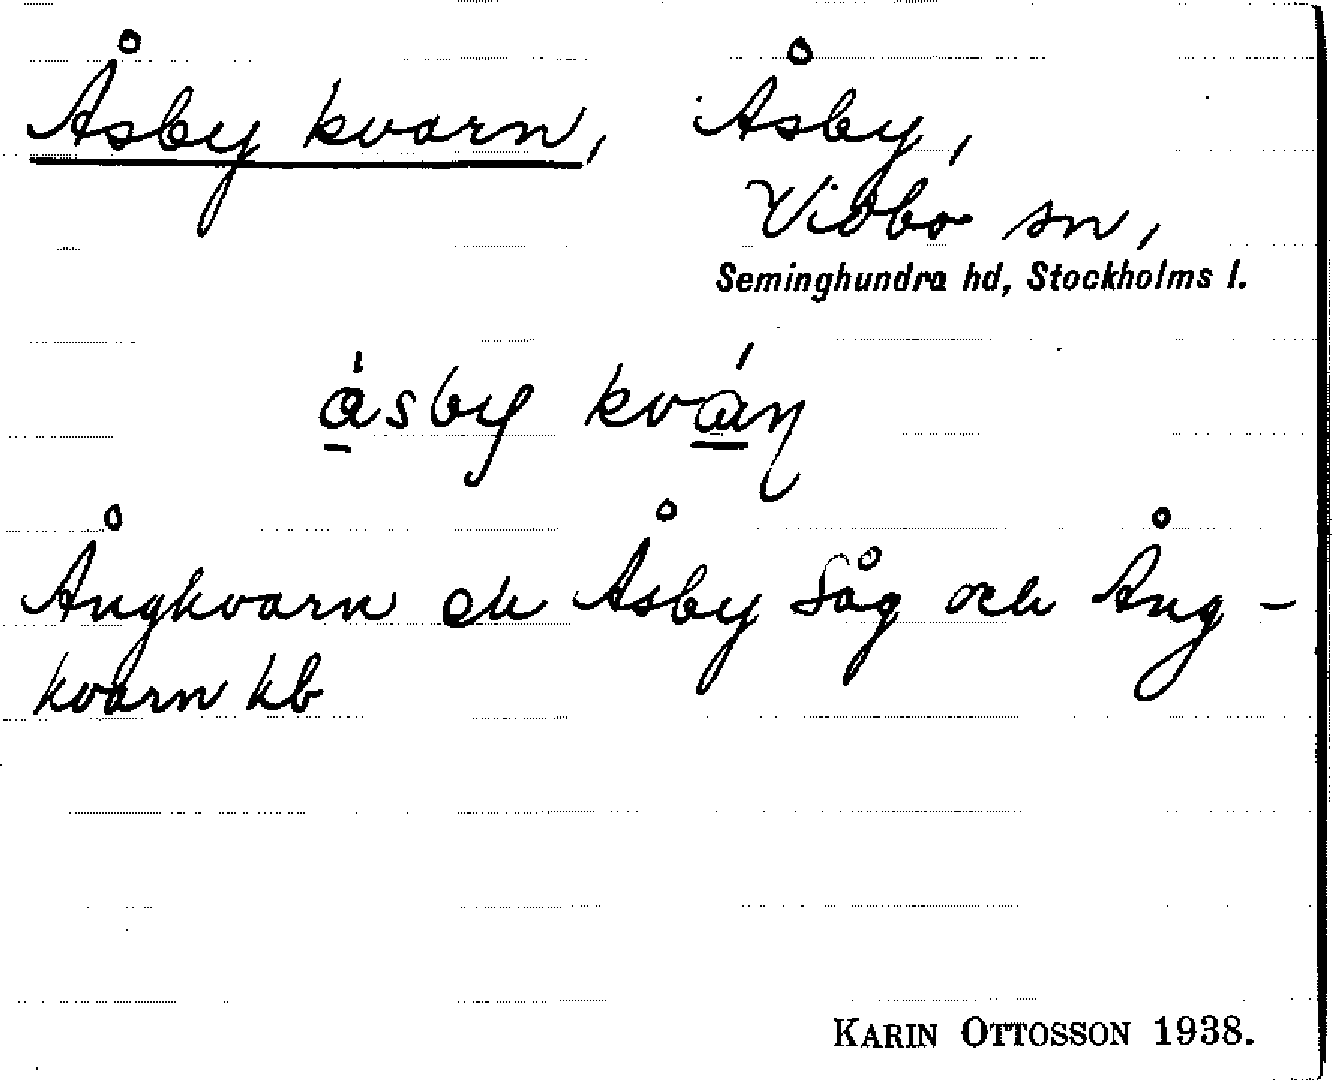 Åsby kvarn, Åsby,
Vidbo sn,
Seminghundra hd, Stockholms l.
ásby kváɳ
Ångkvarn ek Åsby Såg och Ång-
kvarn kb
KARIN OTTOSSON 1938.